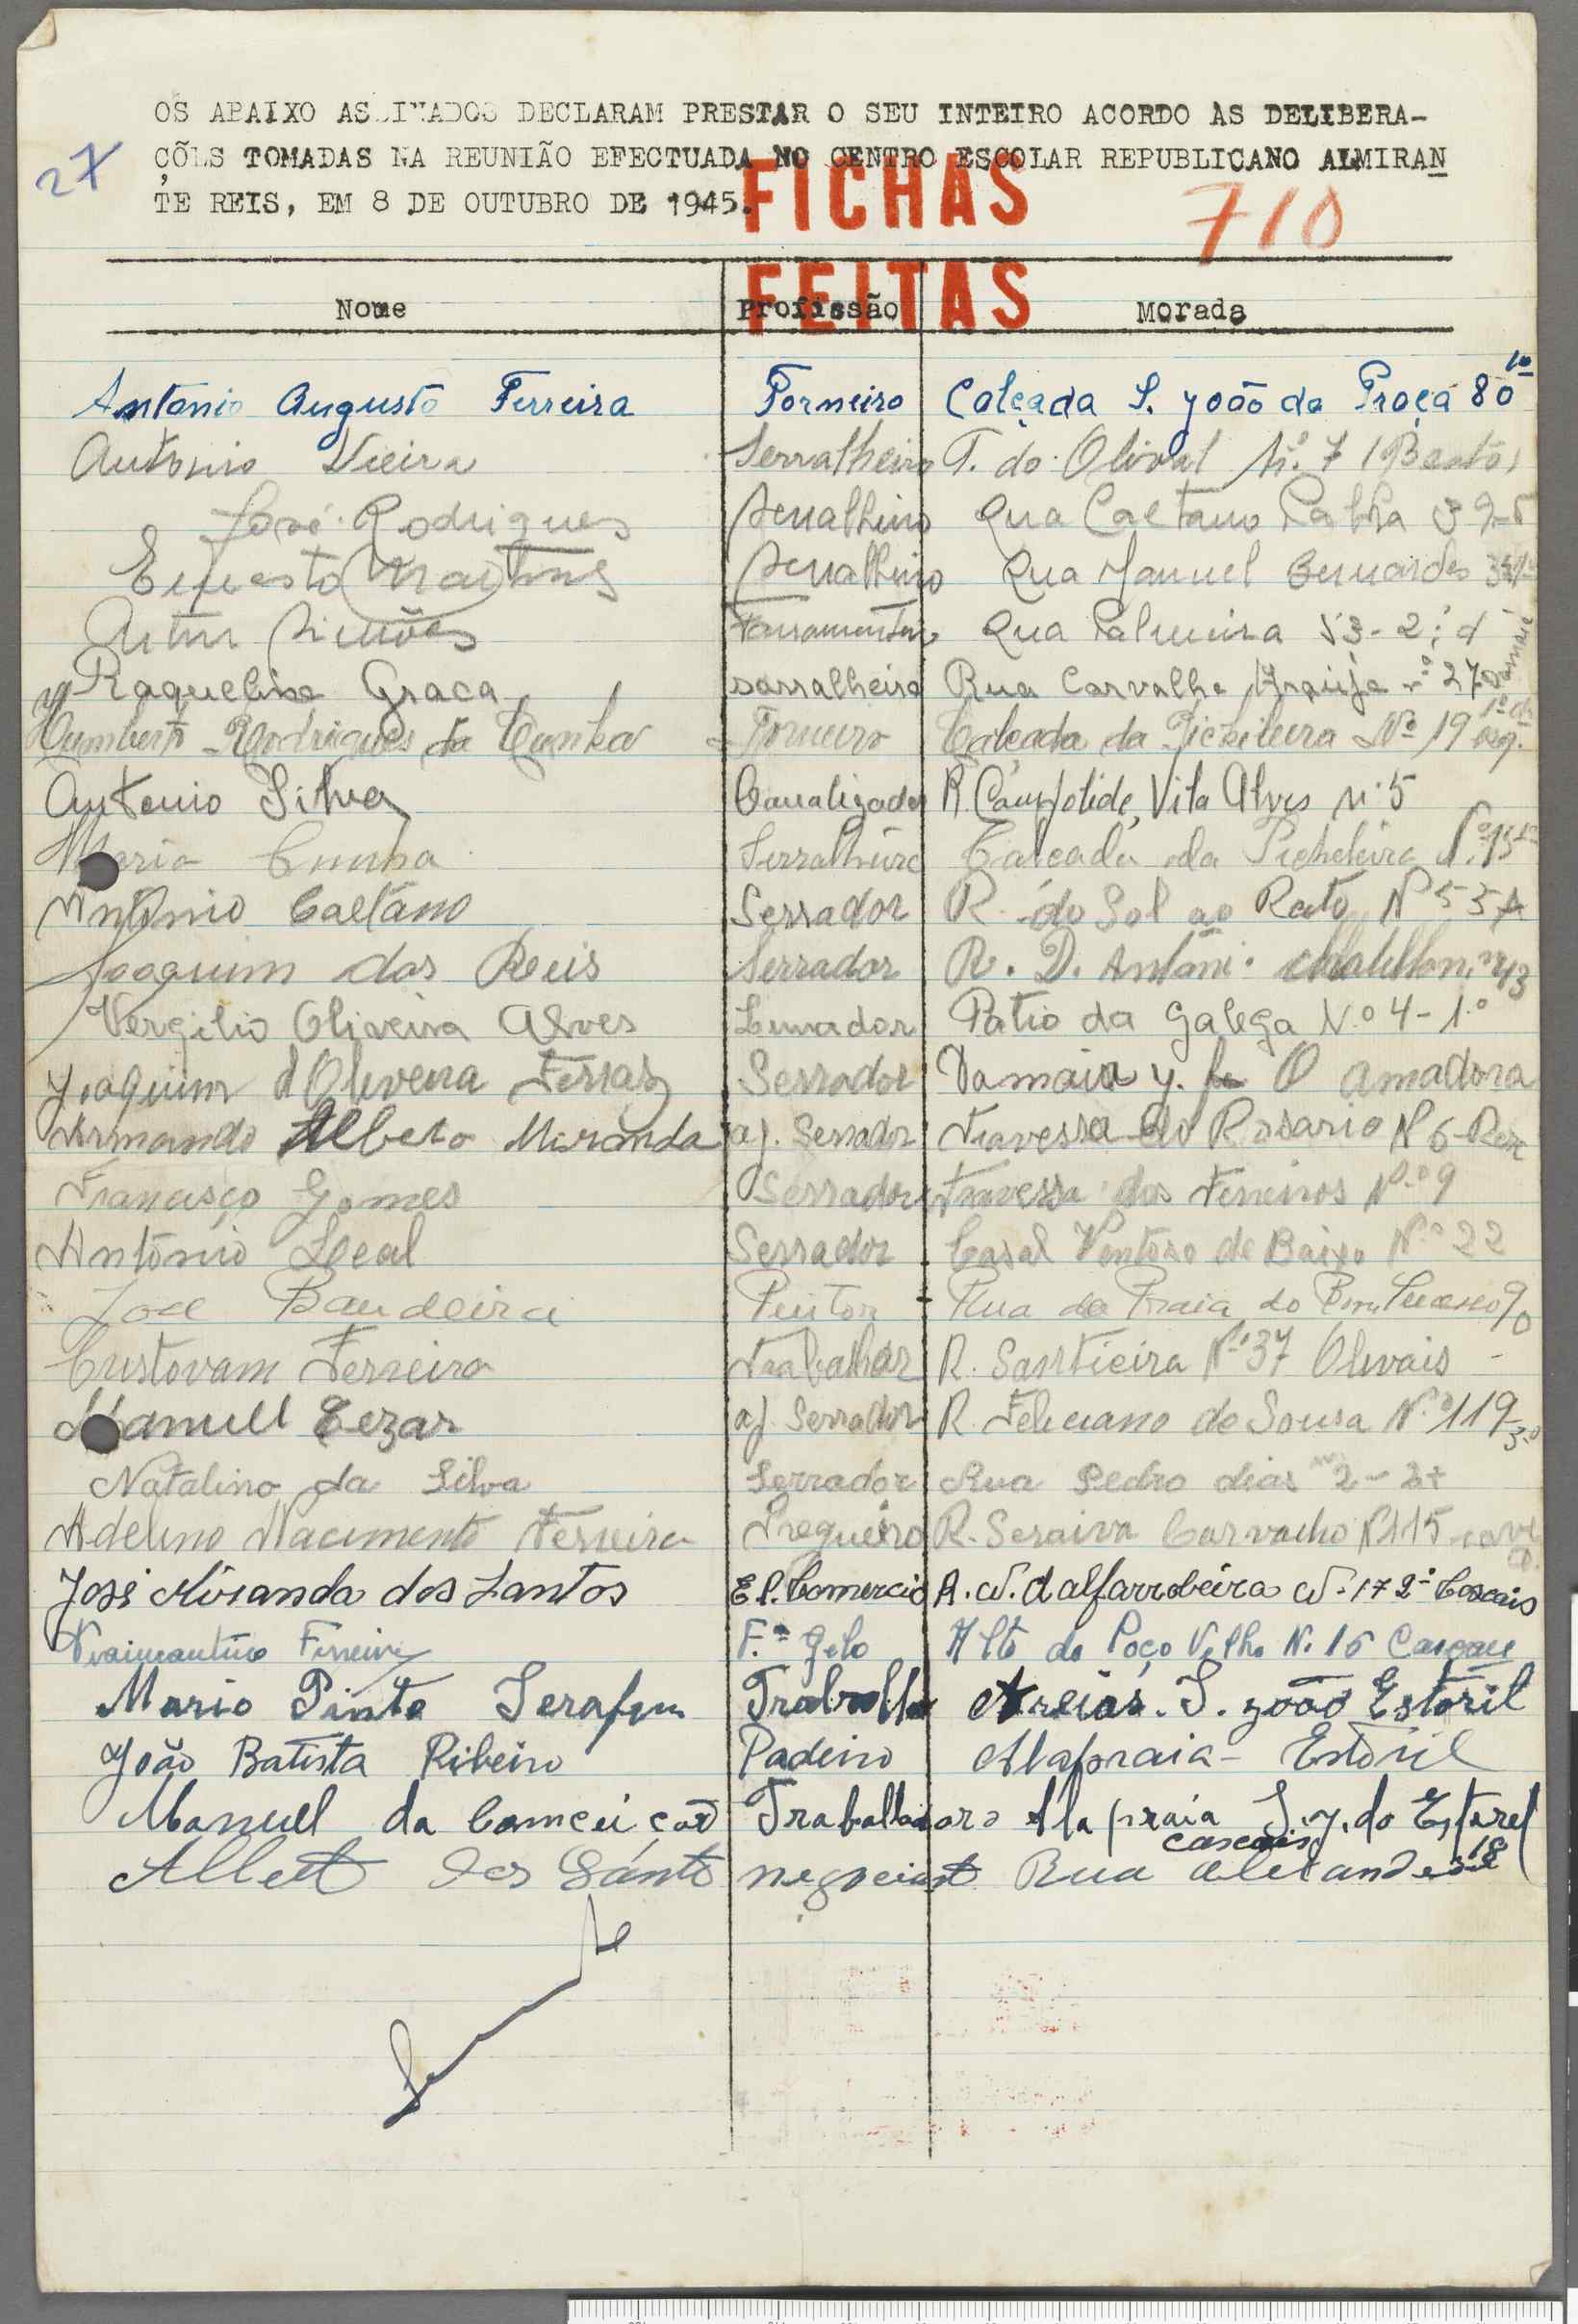 OS ABAIXO ASSINADOS DECLARAM PRESTAR O SEU INTEIRO ACORDO ÀS DELIBERA-
27
ÇÕES TOMADAS NA REUNIÃO EFECTUADA NO CENTRO ESCOLAR REPUBLICANO ALMIRAN
TE REIS, EM 8 DE OUTUBRO DE 1945.
FICHAS
710
FEITAS
Nome Profissão Morada
Antonio Augusto Ferreira Torneiro Calçada S. João da Praça 80 1º
Antonio Vieira Serralheiro T. do Olival Nº 7
José Rodrigues Serralheiro Rua Caetano 39-
Ernesto Martins Serralheiro Rua Manuel Bernardes
Artur Simões Rua Palmeira 53-2º d
Raquelino Graca sarralheiro Rua Carvalho Araujo nº 27 Damaia
Humberto Rodrigues da Cunha Torneiro Calçada da Picheleira Nº 19 1º
Antonio Silva Canalizador R. Campolide, Vila Alves nº 5
Mario Cunha Serralheiro Calçada da Picheleira Nº
António Caetano Serrador R. do Sol ao Rato Nº 53 A
Joaquim dos Reis Serrador R. D. Antóni
Vergilio Oliveira Alves Patio da Galega N.º 4-1.º
Joaquim d'Oliveira Ferraz Serrador Damaia O Amadora
Armando Alberto Miranda aj. Serrador Travessa do Rosario Nº 6
Francisço Gomes Serrador Travessa dos Ferreiros N.º 9
António Leal Serrador Casal Ventoso de Baixo N.º 22
Jose Bandeira Pintor Rua da Praia do Bom Sucesso 90
Cristovam Ferreira Trabalhar R. Santieira N.º 37 Olivais
Manuel Cezar aj. Serrador R. Feliciano de Sousa N.º 119 3º
Natalino da Silva Serrador Rua Pedro dias nº 2-2
Adelino Nacimento Ferreira Pregueiro R. Seraiva Carvalho Nº 115 cave
José Miranda dos Santos E. Comercio R. N. d'alfarrobeira N. 17 2º Cascais
Ferreira F.ª Gelo Alto do Poço Velho N. 16 Cascais
Mario Pinto Serafim Areias. S. João Estoril
João Batista Ribeiro Padeiro Alapraia - Estoril
Manuel da Comceiçao Alapraia S. J. do Estorel
Cascais
dos Santo negociant Rua 18